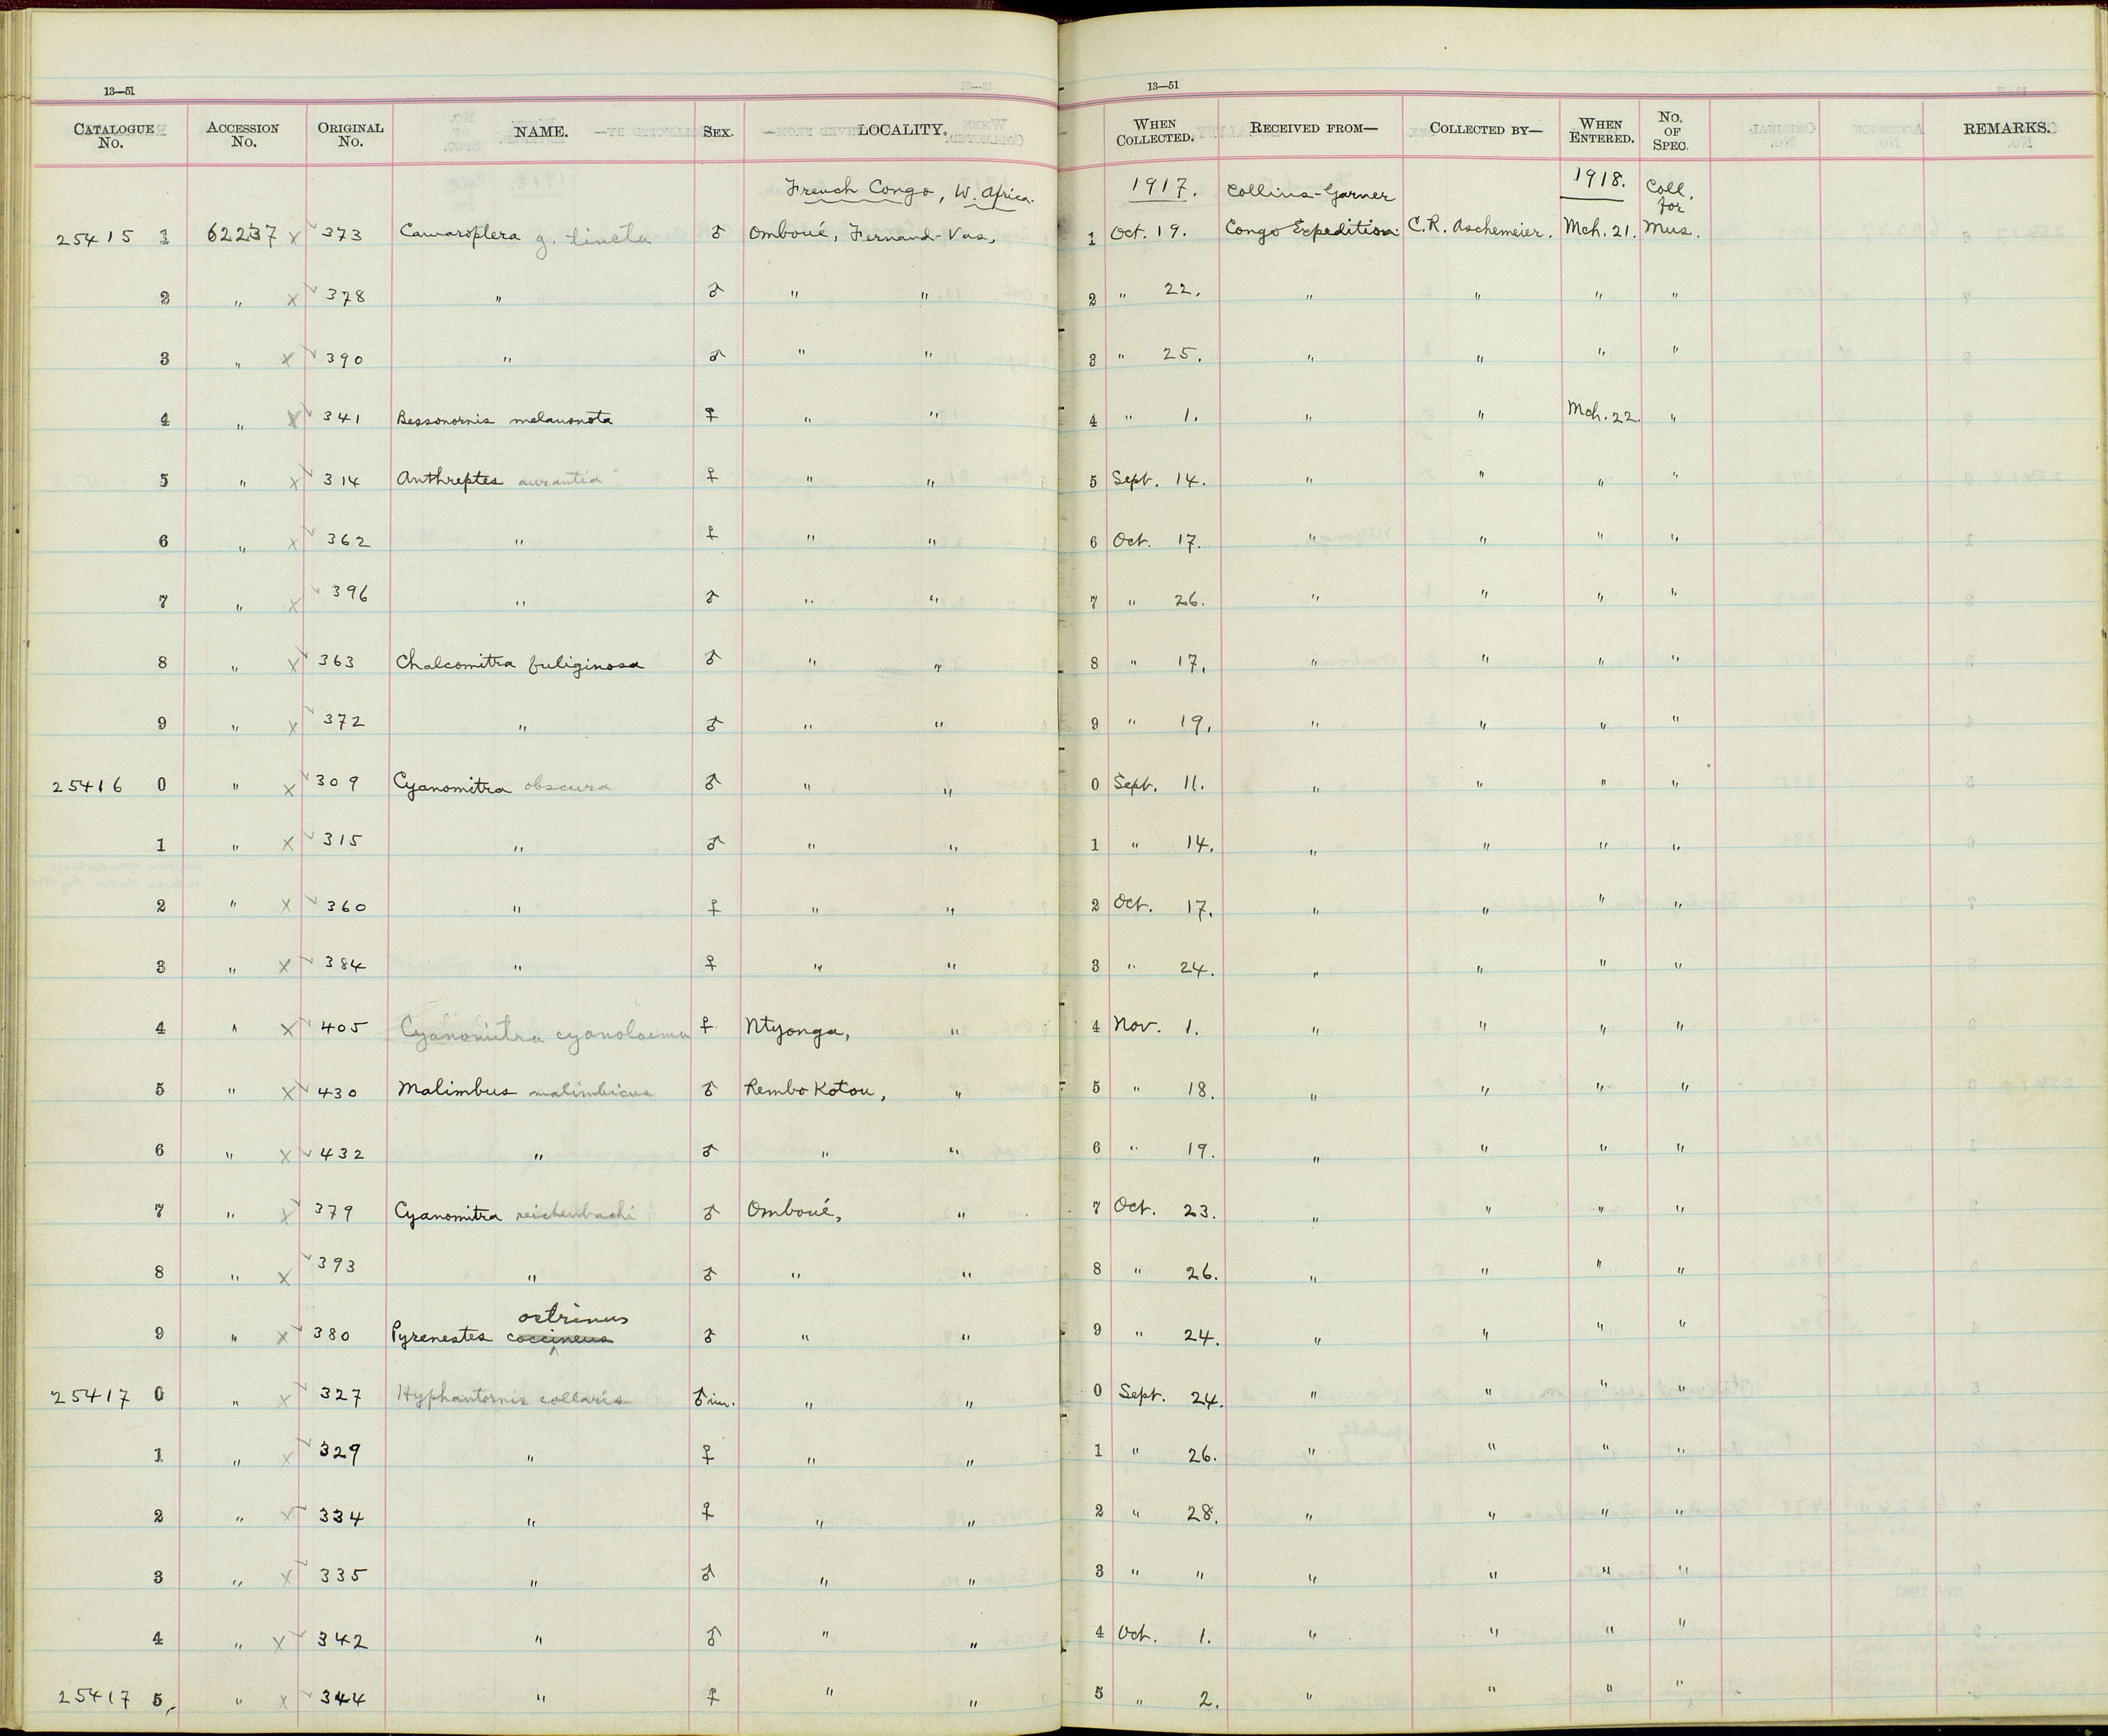 13—51
13—51
CATALOGUE No. ACCESSION No. ORIGINAL No. NAME. SEX. LOCALITY. WHEN COLLECTED. RECEIVED FROM— COLLECTED BY— WHEN ENTERED. No. OF SPEC. REMARKS.
French Congo, W. Africa. 1917. Collins-Garner 1918. Coll. for
25415 1 62237 x ✓ 373 Camaroptera g. tincta ♂ Omboué, Fernand-Vas, 1 Oct. 19. Congo Expedition. C.R. Aschemeier. Mch. 21. Mus.
2 " x ✓ 378 " ♂ " " 2 " 22. " " " "
3 " x ✓ 390 " ♂ " " 3 " 25. " " " "
4 " x ✓ 341 Bessonornis melanonota ♀ " " 4 " 1. " " Mch. 22. "
5 " x ✓ 314 Anthreptes aurantia ♀ " " 5 Sept. 14. " " " "
6 " x ✓ 362 " ♀ " " 6 Oct. 17. " " " "
7 " x ✓ 396 " ♂ " " 7 " 26. " " " "
8 " x ✓ 363 Chalcomitra fuliginosa ♂ " " 8 " 17. " " " "
9 " x ✓ 372 " ♂ " " 9 " 19. " " " "
25416 0 " x ✓ 309 Cyanomitra obscura ♂ " " 0 Sept. 11. " " " "
1 " x ✓ 315 " ♂ " " 1 " 14. " " " "
2 " x ✓ 360 " ♀ " " 2 Oct. 17. " " " "
3 " x ✓ 384 " ♀ " " 3 " 24. " " " "
4 " x ✓ 405 Cyanomitra cyanolaema ♀ Ntyonga, " 4 Nov. 1. " " " "
5 " x ✓ 430 Malimbus malimbicus ♂ Rembo Kotou, " 5 " 18. " " " "
6 " x ✓ 432 " ♂ " " 6 " 19. " " " "
7 " x ✓ 379 Cyanomitra reichenbachi ♂ Omboué, " 7 Oct. 23. " " " "
8 " x ✓ 393 " ♂ " " 8 " 26. " " " "
ostrinus
9 " x ✓ 380 Pyrenestes coccineus ♂ " " 9 " 24. " " " "
25417 0 " x ✓ 327 Hyphantornis collaris ♂ im. " " 0 Sept. 24. " " " "
1 " x ✓ 329 " ♀ " " 1 " 26. " " " "
2 " x ✓ 334 " ♀ " " 2 " 28. " " " "
3 " x ✓ 335 " ♂ " " 3 " " " " " "
4 " x ✓ 342 " ♂ " " 4 Oct. 1. " " " "
25417 5, " x ✓ 344 " ♀ " " 5 " 2. " " " "